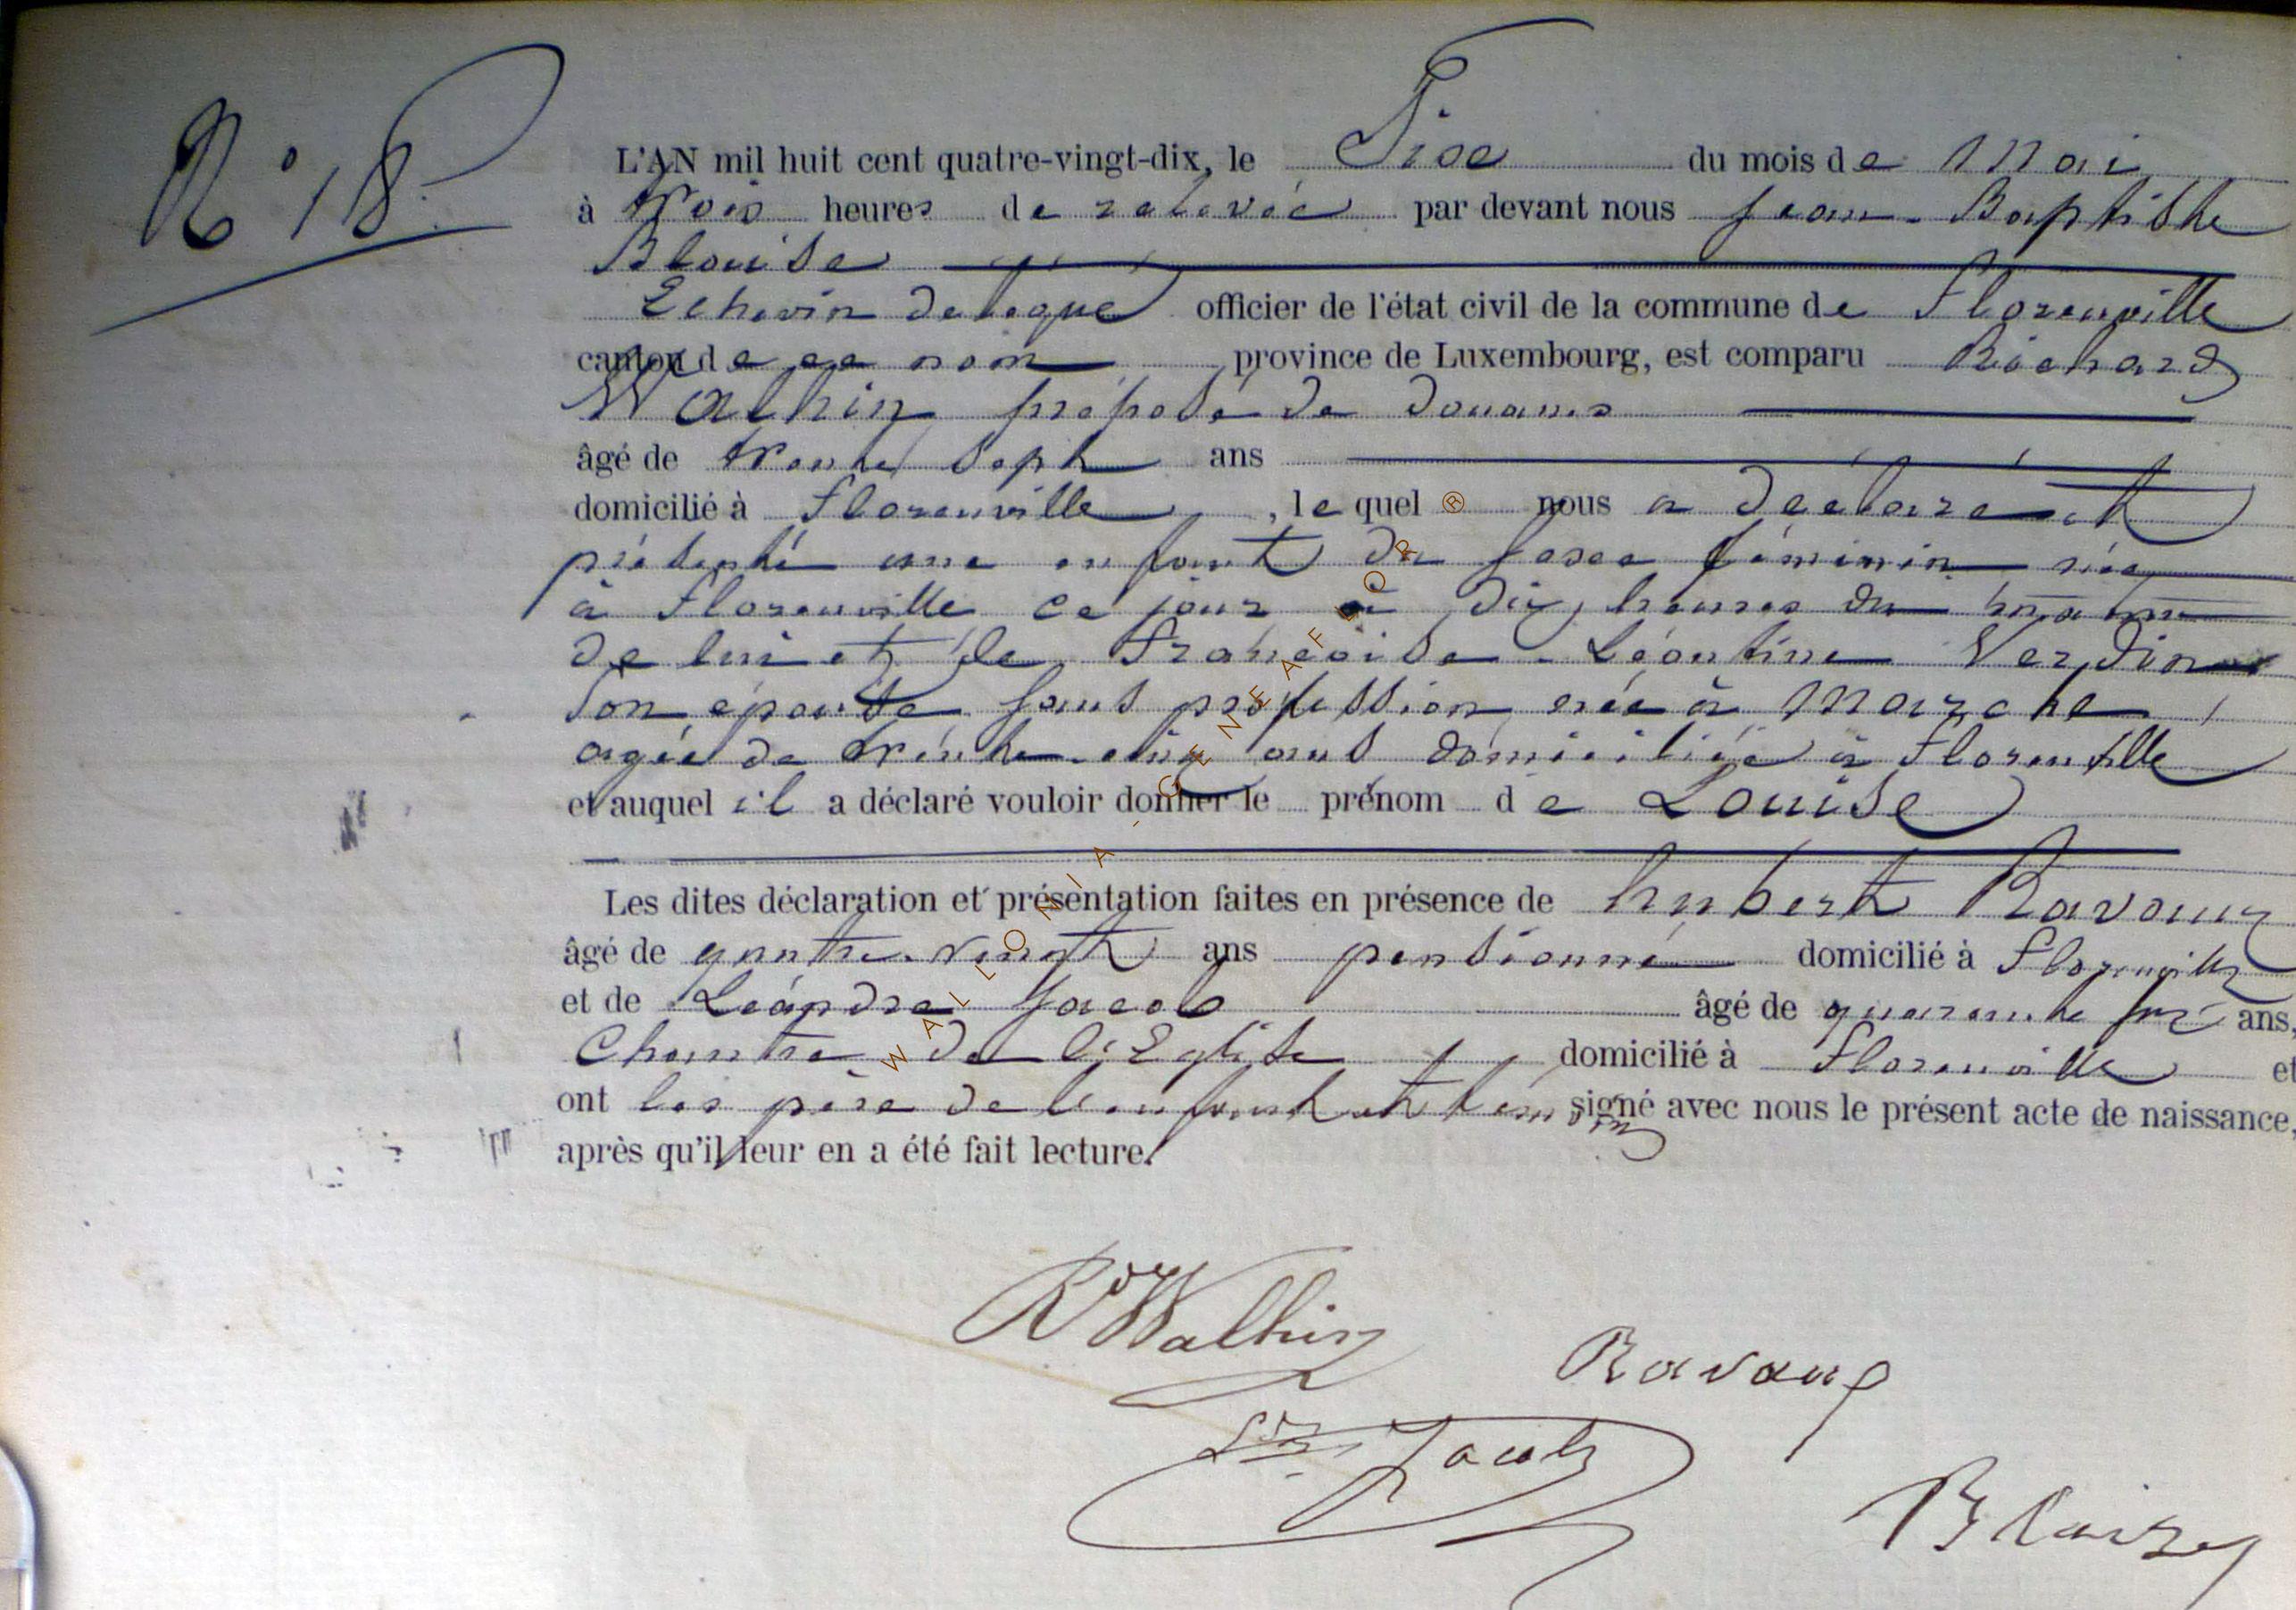 N° 18
L'AN mil huit cent quatre-vingt-dix, le Six du mois de Mai
à trois heures de relevée par devant nous Jean-Baptiste
Blaise
Echevin délégué officier de l'état civil de la commune de Florenville
canton de ce nom province de Luxembourg, est comparu Richard
Walhin préposé de douanes
âgé de trente sept ans
domicilié à Florenville, lequel nous a déclaré et
présenté une enfant du sexe féminin née
à Florenville ce jour à dix heures du matin
de lui et de Françoise-Léontine Verdin
son épouse sans profession née à Marche,
agée de trente-cinq ans domiciliée à Florenville
et auquel il a déclaré vouloir donner le prénom de Louise
Les dites déclaration et présentation faites en présence de hubert Ravaux
âgé de quatre-vingt ans pensionné domicilié à Florenville
et de Léandre Jacob âgé de quarante ans,
Chantre de l'Eglise domicilié à Florenville et
ont les père de l'enfant et témoins signé avec nous le présent acte de naissance,
après qu'il leur en a été fait lecture.
Rd Walhin
Ravaux
Jacob
Blaise
WALLONIA - GENEAFEPOR ®